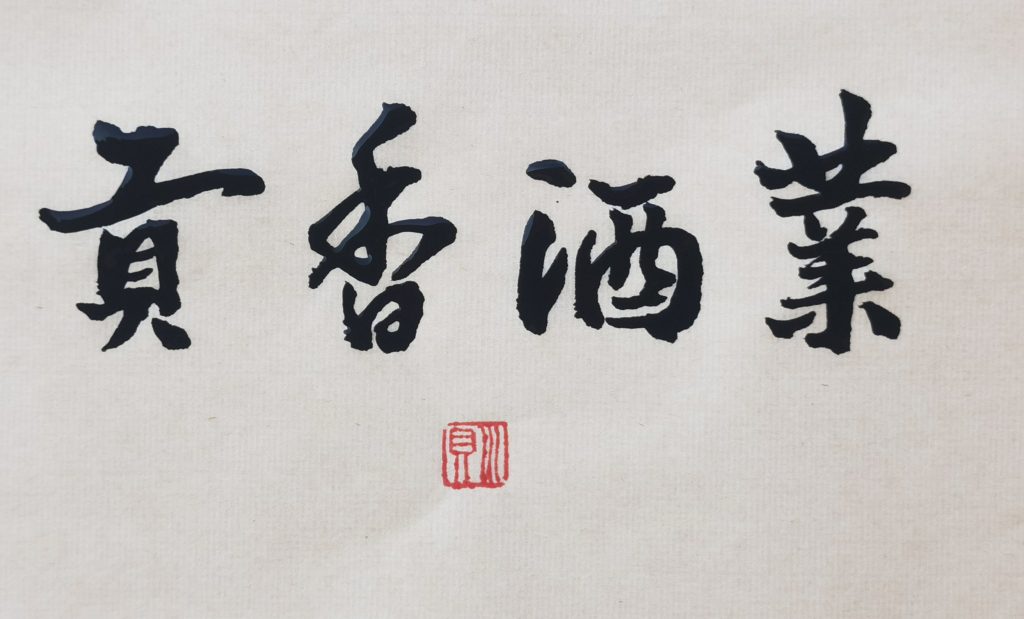 貢香酒業